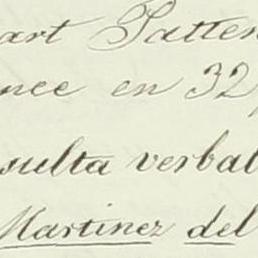 art Patten
nee en 32,
sulta verbal
Martinez del